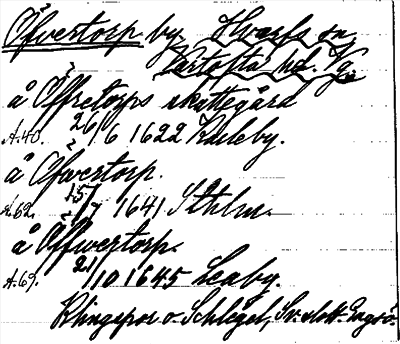 Öfvertorp by, Hvarfs sn
Vartofta hd. Vg.
å Öffretorps skattegård
A.40. 26/6 1622 Rudeby.
å Ofvertorp.
A.62. 15/7 1641 Sthlm.
å Offvertorp.
A.69. 21/10 1645 Leaby.
Klingspor o. Schlegel, Sv. slott